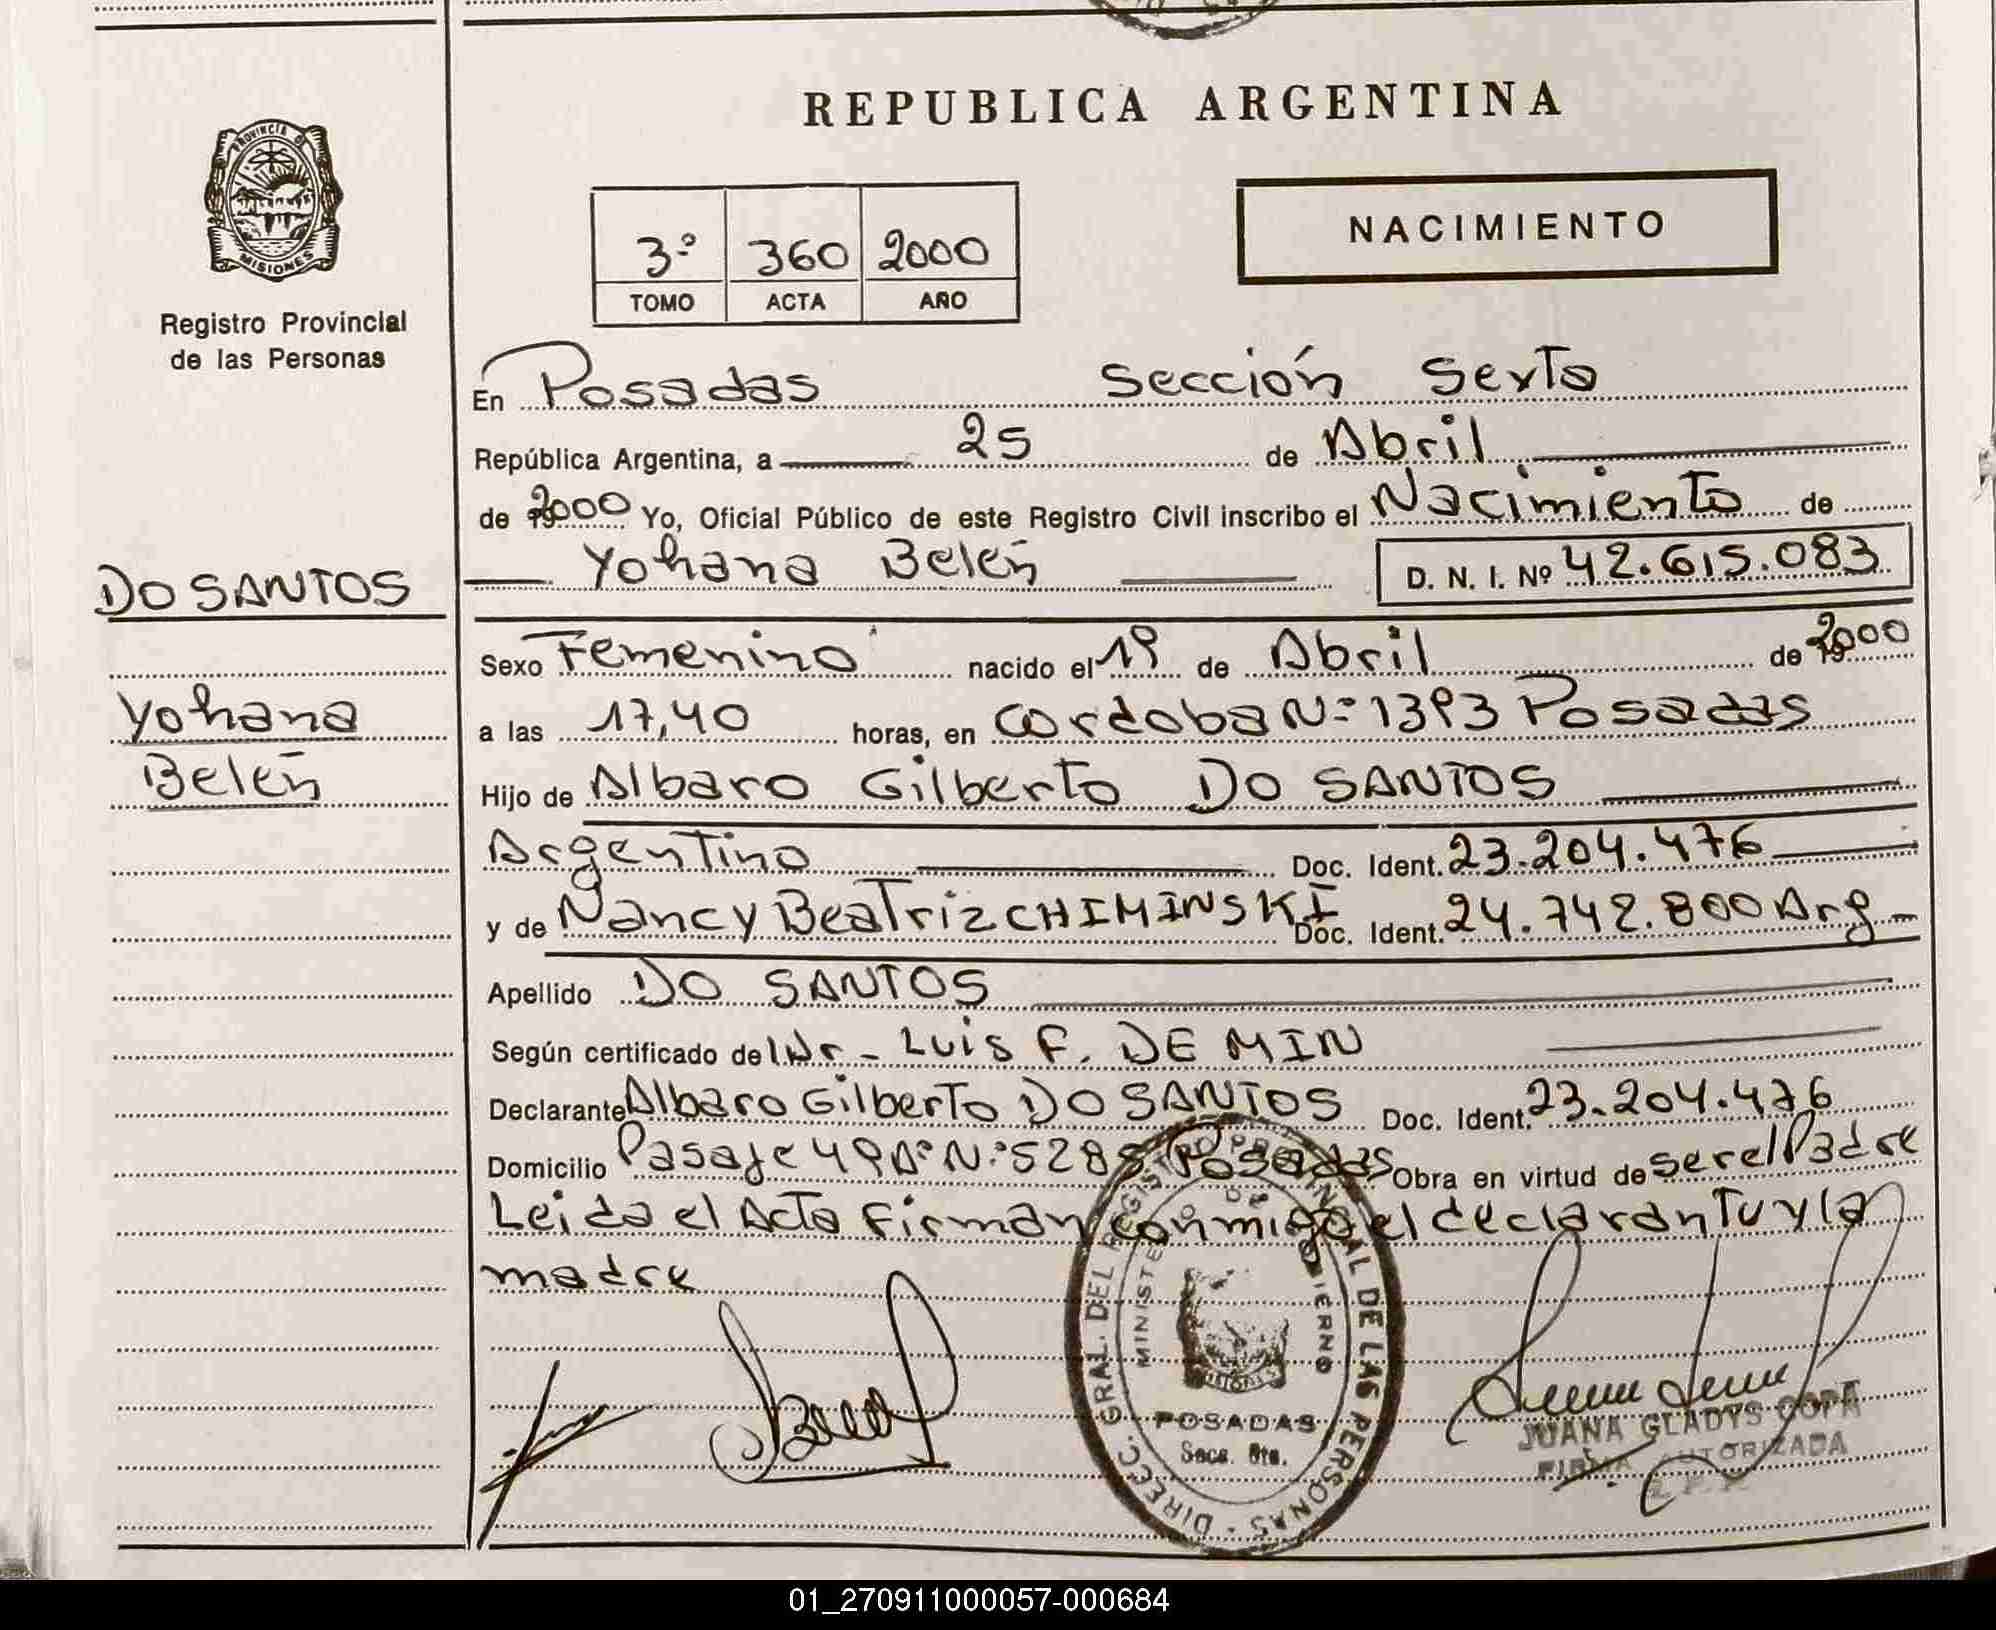 REPUBLICA ARGENTINA
PROVINCIA DE
MISIONES
Registro Provincial
de las Personas
3º 360 2000
TOMO ACTA AÑO
NACIMIENTO
En Posadas Sección Sexta
República Argentina, a 25 de Abril
de 2000 Yo, Oficial Público de este Registro Civil inscribo el Nacimiento de
Yohana Belén D. N. I. Nº 42.615.083
DO SANTOS
Yohana
Belén
Sexo Femenino nacido el 19 de Abril de 2000
a las 17,40 horas, en Cordoba Nº 1393 Posadas
Hijo de Albaro Gilberto DO SANTOS
Argentino Doc. Ident. 23.204.476
y de Nancy Beatriz CHIMINSKI Doc. Ident. 24.742.800 Arg
Apellido DO SANTOS
Según certificado del Dr - Luis F. DE MIN
Declarante Albaro Gilberto DO SANTOS Doc. Ident. 23.204.476
Domicilio Pasaje 49 Nº 5288 Posadas Obra en virtud de ser el Padre
Leida el Acta Firman conmigo el declarante y la
madre
DIRECC. GRAL. DEL REGISTRO PROVINCIAL DE LAS PERSONAS
MINISTERIO DE GOBIERNO
MISIONES
POSADAS
Secc. 6ta.
JUANA GLADYS COPA
FIRMA AUTORIZADA
01_270911000057-000684